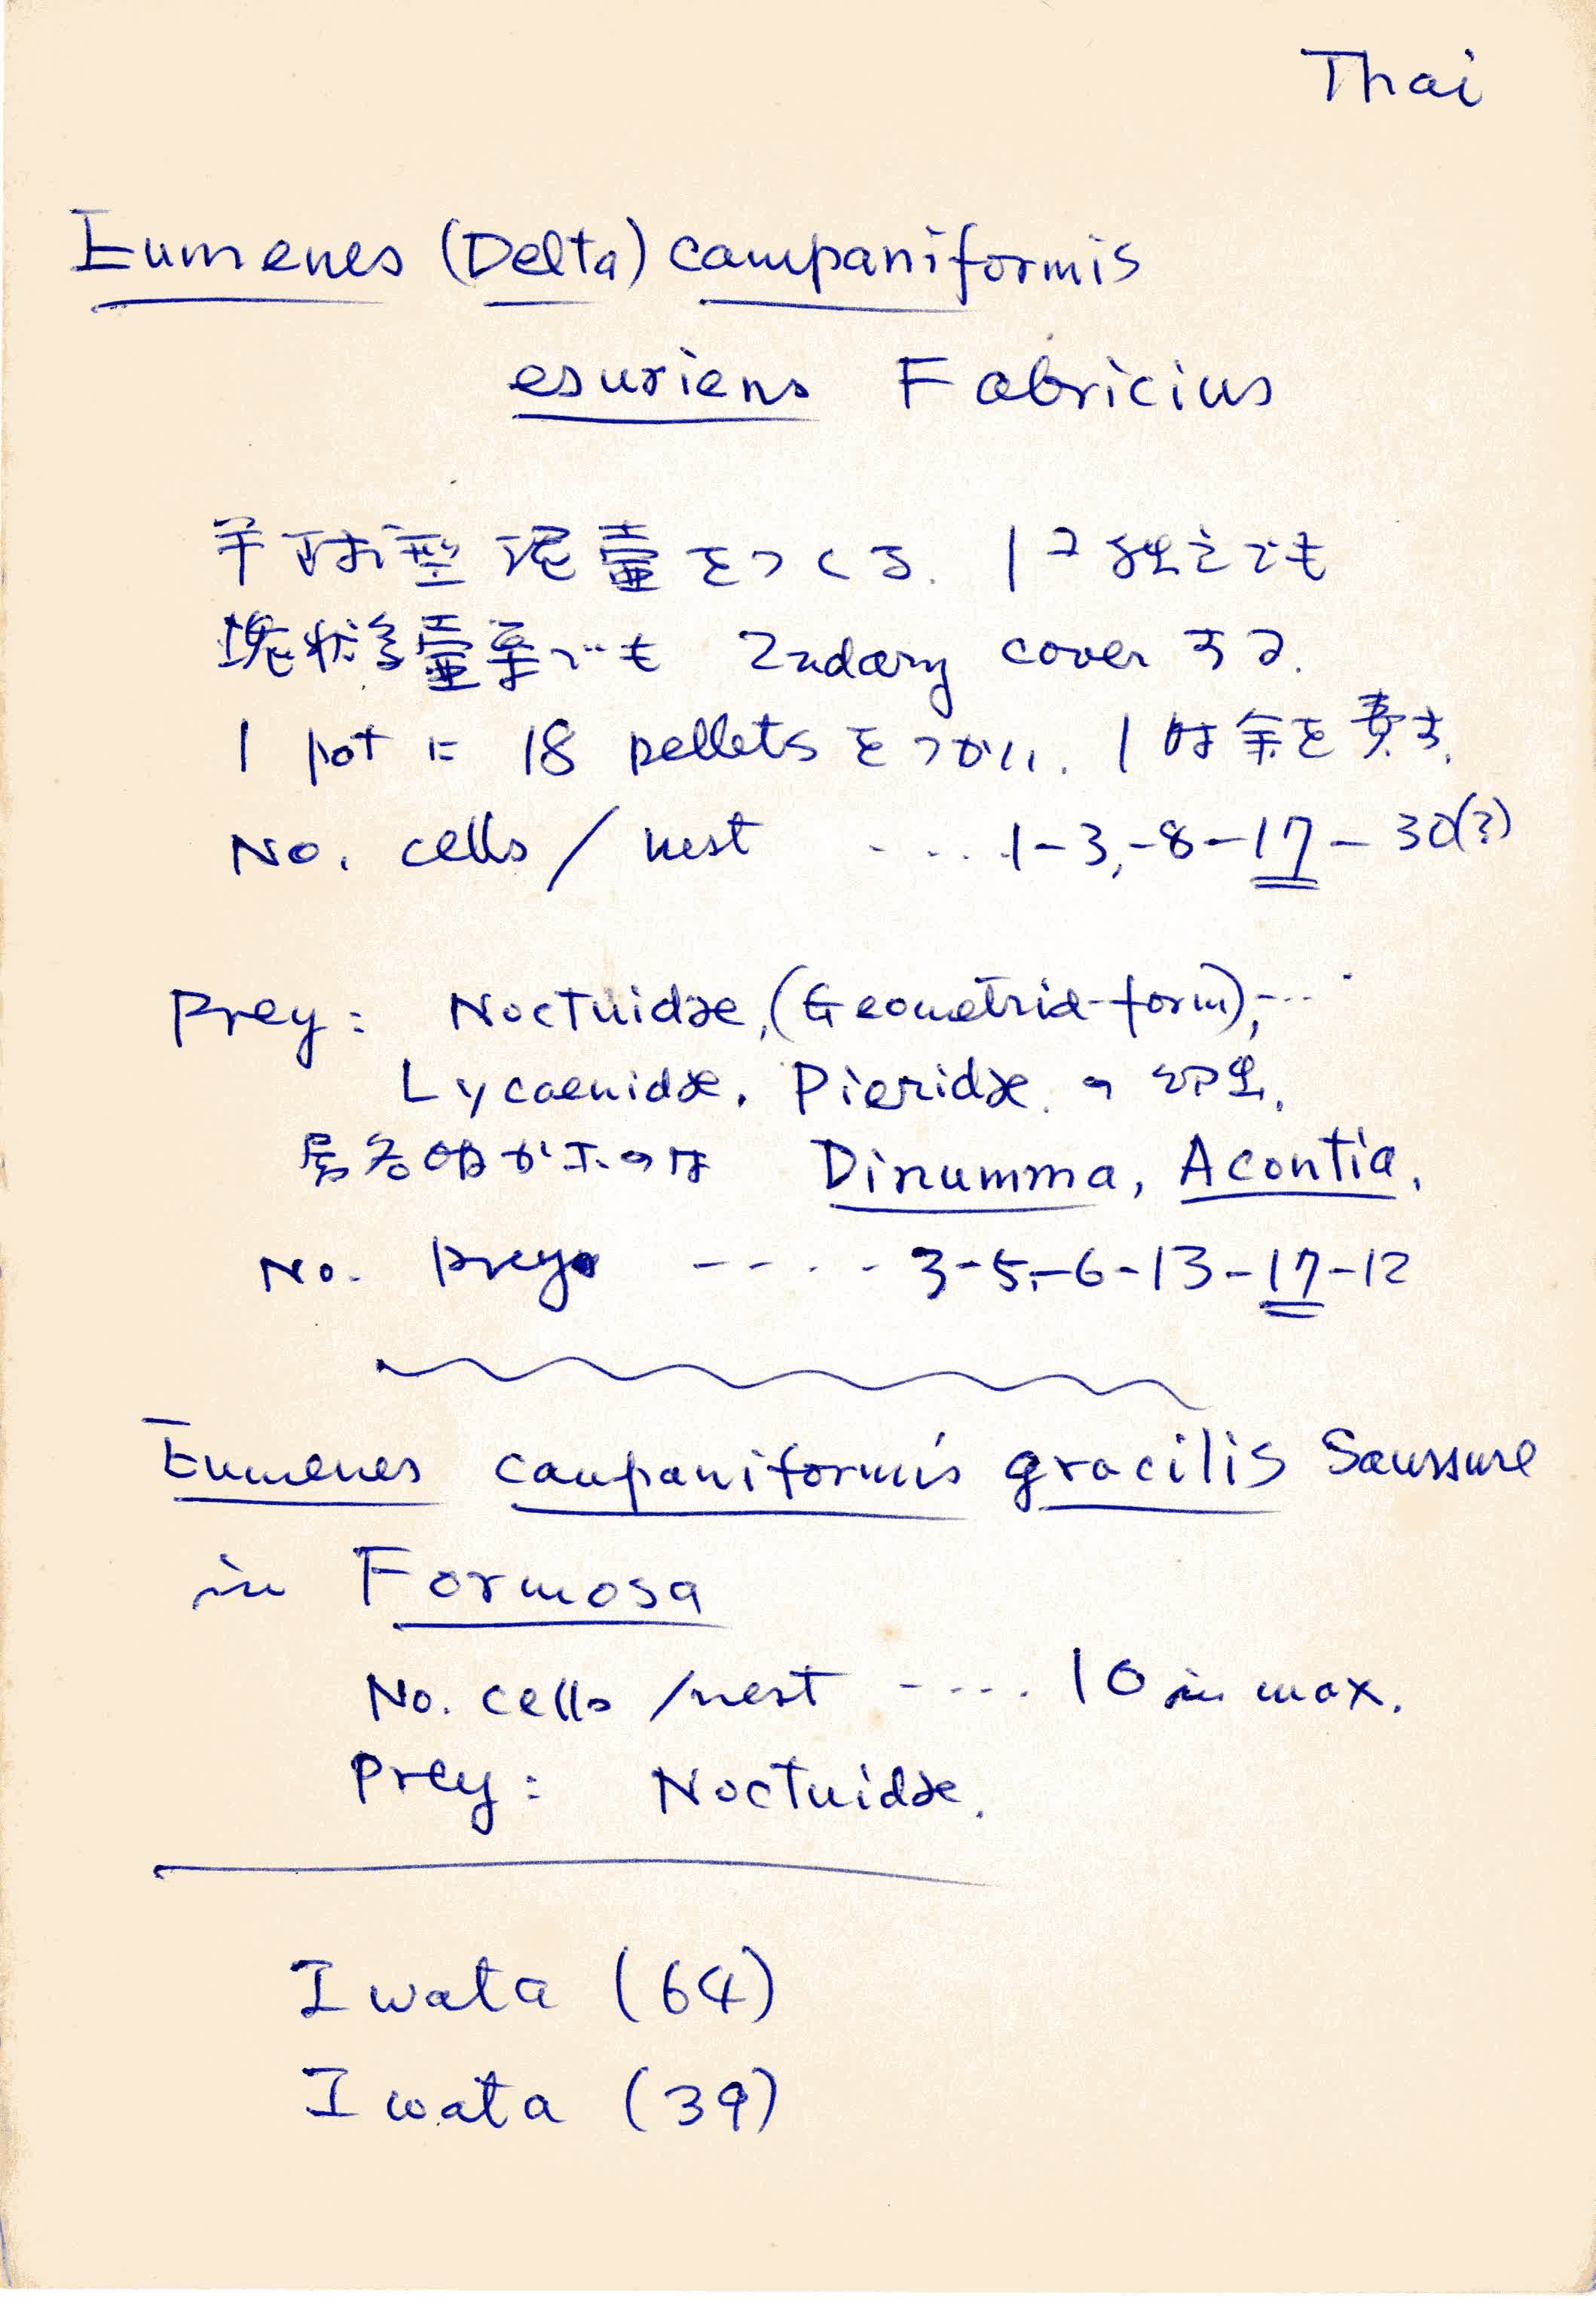 Thai
Eumenes (Delta) campaniformis
esuriens Fabricius
半球型泥壷をつくる. 1コ独立でも
塊状多壷巣でも 2ndary cover する.
1 pot に 18 pellets をつかい. 1時余を費す.
No. cells / nest .... 1-3,-8-17-30(?)
Prey: Noctuidae, (Geometrid-form),...
Lycaenidae. Pieridae. の幼虫.
属名明かなのは Dinumma, Acontia.
No. prey ----- 3-5,-6-13-17-12
Eumenes campaniformis gracilis Saussure
in Formosa
No. cells /nest ---.. 10 in max.
Prey: Noctuidae.
Iwata (64)
Iwata (39)